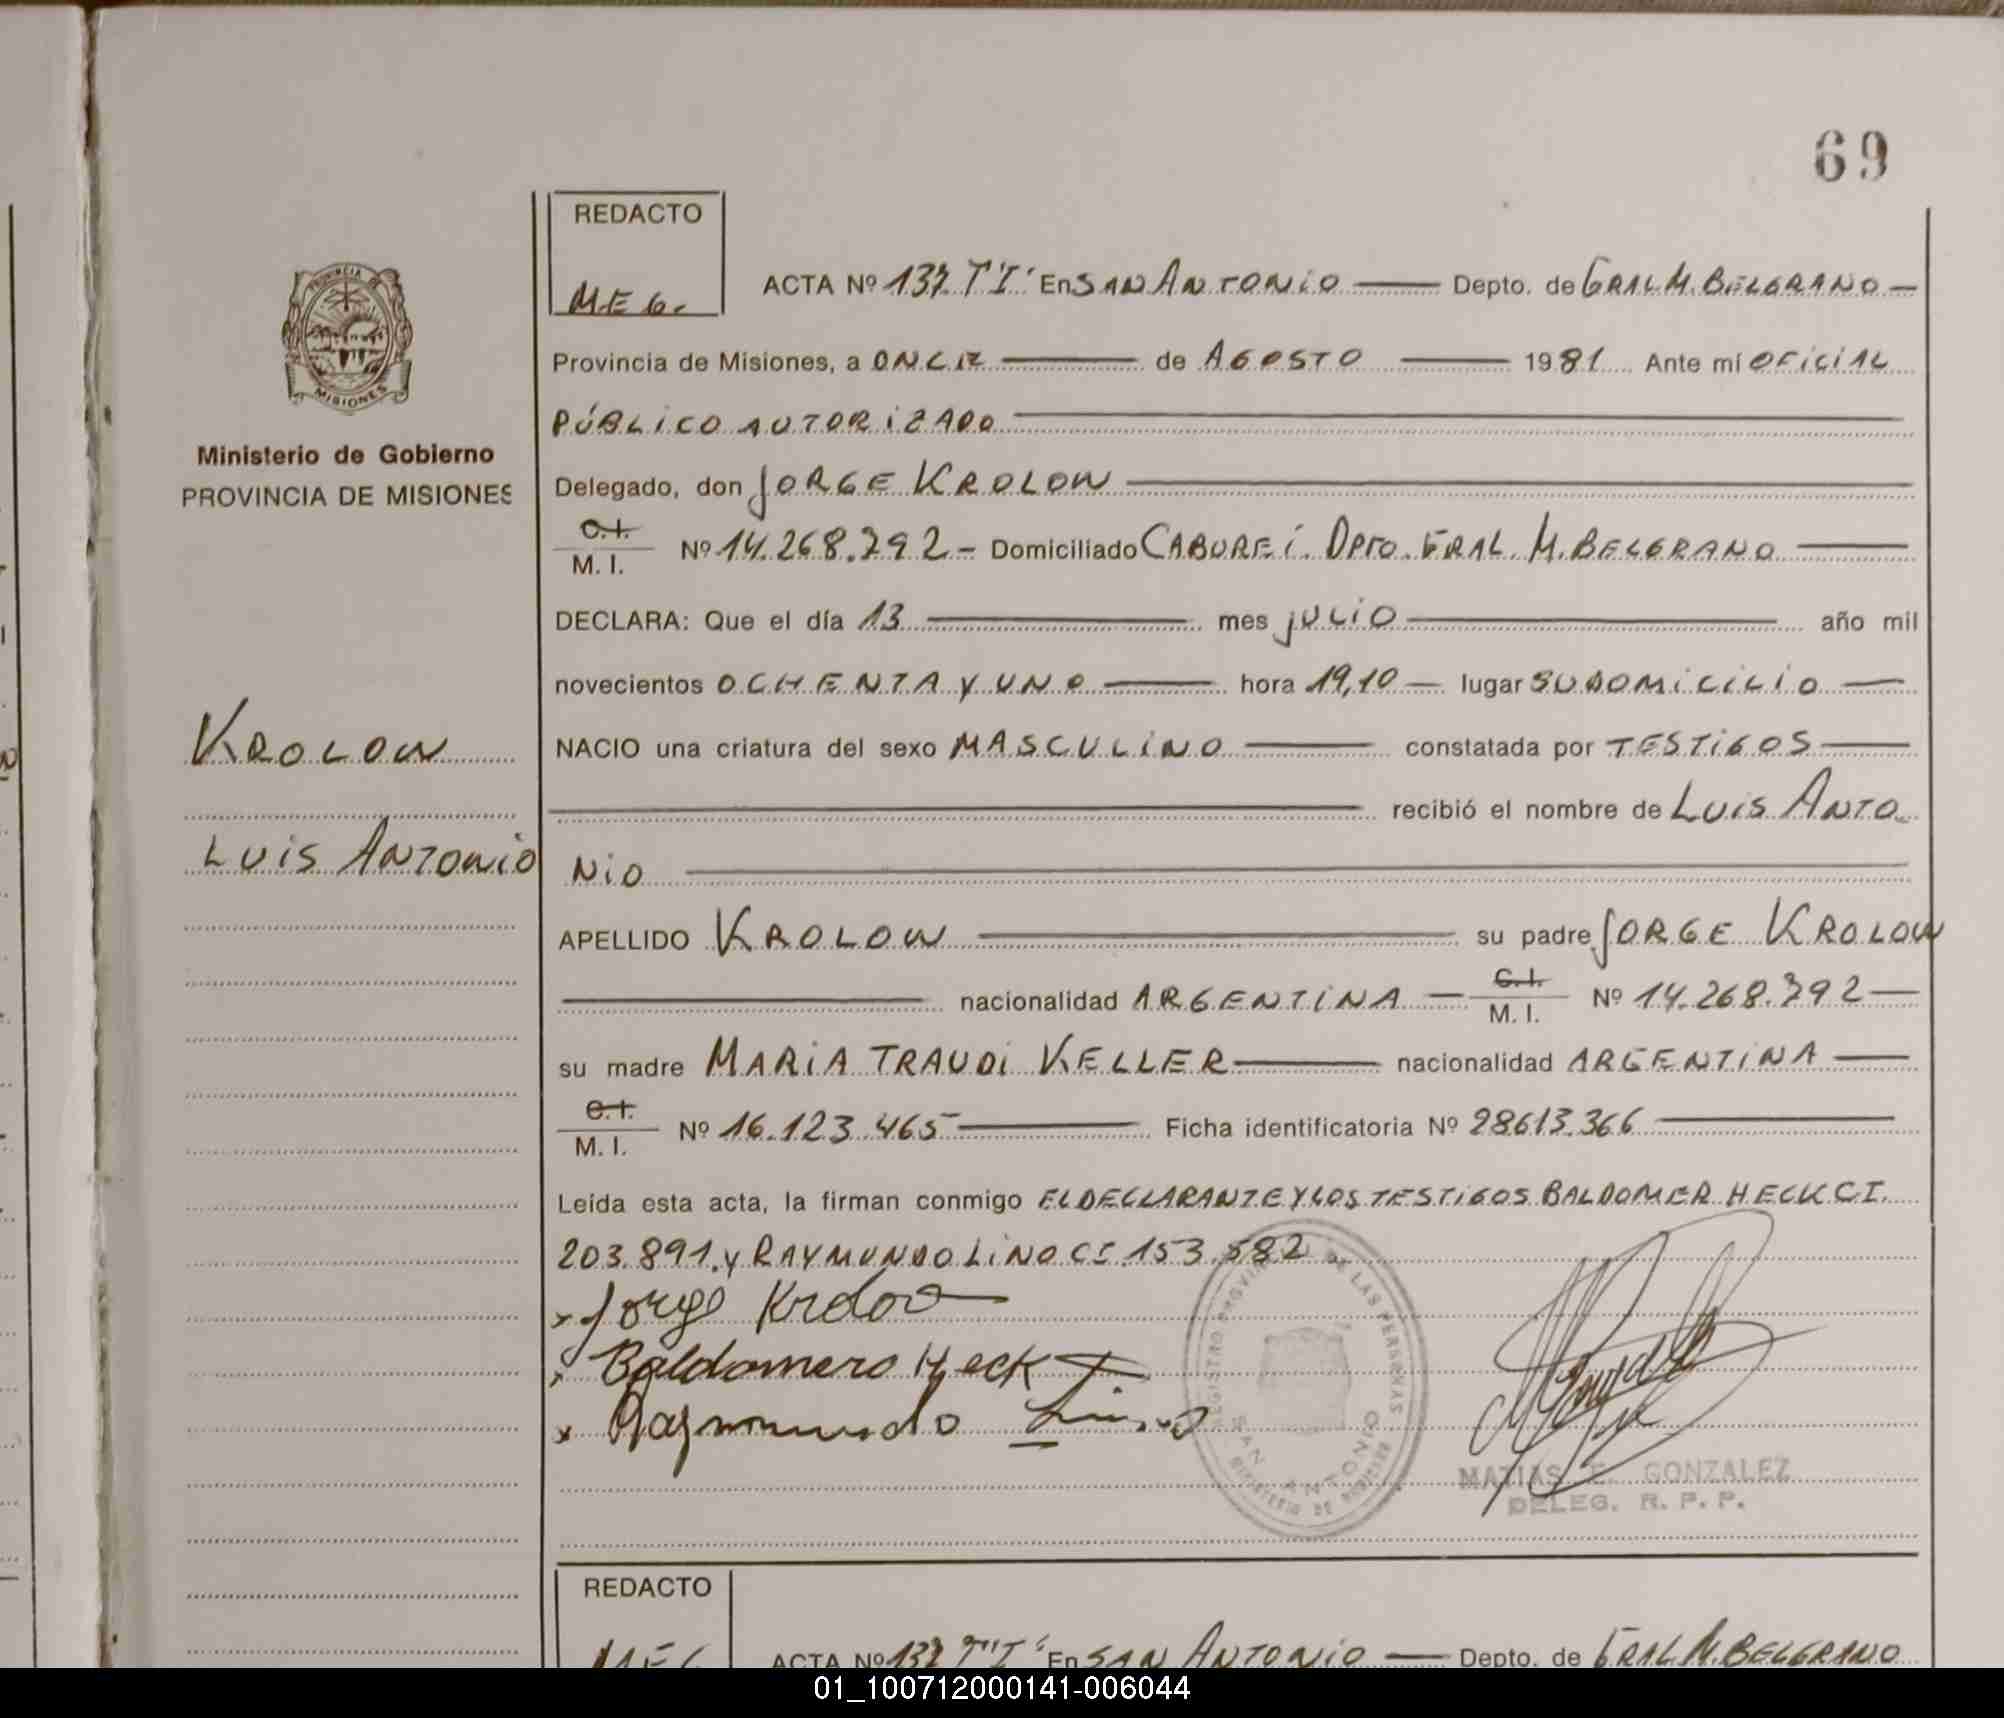 69
REDACTO
M.E G.
ACTA Nº 137 T"I" En SAN ANTONIO Depto. de GRAL M. BELGRANO
Provincia de Misiones, a ONCE de AGOSTO 1981 Ante mí OFICIAL
PÚBLICO AUTORIZADO
Delegado, don JORGE KROLOW
C.I.
M. I. Nº 14.268.792 - Domiciliado CABUREÍ. DPTO. GRAL M. BELGRANO
DECLARA: Que el día 13 mes JULIO año mil
novecientos OCHENTA Y UNO hora 19,10 lugar SU DOMICILIO
NACIO una criatura del sexo MASCULINO constatada por TESTIGOS
recibió el nombre de LUIS ANTO
NIO
APELLIDO KROLOW su padre JORGE KROLOW
nacionalidad ARGENTINA C.I. M. I. Nº 14.268.792
su madre MARIA TRAUDI KELLER nacionalidad ARGENTINA
C.I.
M. I. Nº 16.123.465 Ficha identificatoria Nº 28613.366
Leída esta acta, la firman conmigo EL DECLARANTE Y LOS TESTIGOS BALDOMER HECK C I.
203.891. y RAYMUNDO LINO C I. 153.582
x Jorge Krolow
x Baldomero Heck
x Raymundo Lino
REGISTRO PROVINCIAL DE LAS PERSONAS
SAN ANTONIO
MINISTERIO DE GOBIERNO
MATIAS E. GONZALEZ
DELEG. R. P. P.
PROVINCIA
MISIONES
Ministerio de Gobierno
PROVINCIA DE MISIONES
KROLOW
LUIS ANTONIO
REDACTO
ACTA Nº 137 T"I" En SAN ANTONIO Depto. de GRAL M. BELGRANO
01_100712000141-006044